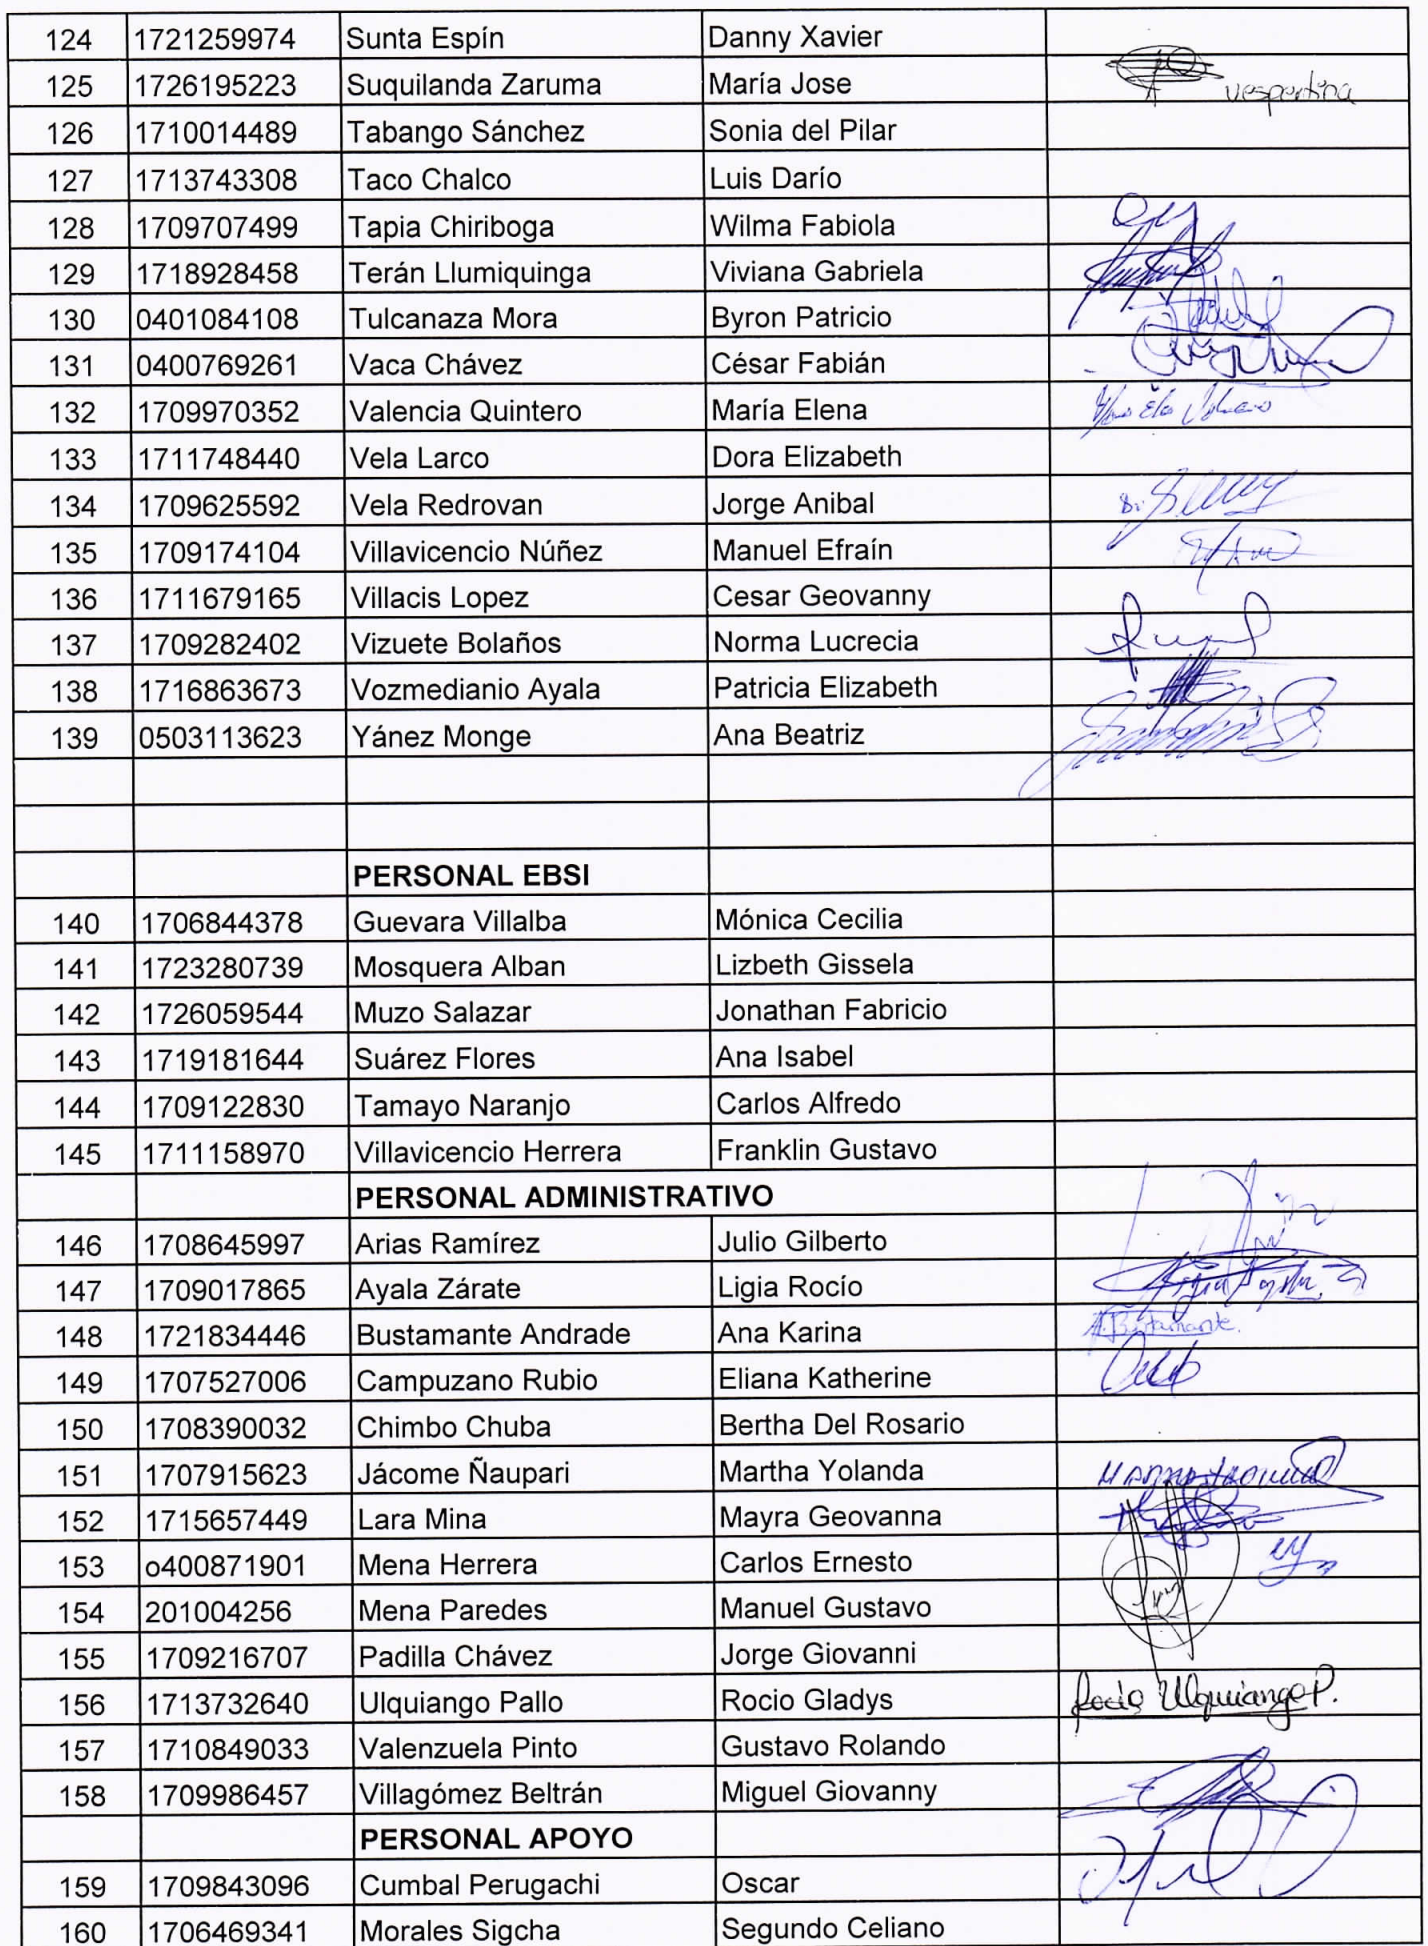 124 1721259974 Sunta Espín Danny Xavier
125 1726195223 Suquilanda Zaruma María Jose vespertina
126 1710014489 Tabango Sánchez Sonia del Pilar
127 1713743308 Taco Chalco Luis Darío
128 1709707499 Tapia Chiriboga Wilma Fabiola
129 1718928458 Terán Llumiquinga Viviana Gabriela
130 0401084108 Tulcanaza Mora Byron Patricio
131 0400769261 Vaca Chávez César Fabián
132 1709970352 Valencia Quintero María Elena
133 1711748440 Vela Larco Dora Elizabeth
134 1709625592 Vela Redrovan Jorge Anibal
135 1709174104 Villavicencio Núñez Manuel Efraín
136 1711679165 Villacis Lopez Cesar Geovanny
137 1709282402 Vizuete Bolaños Norma Lucrecia
138 1716863673 Vozmedianio Ayala Patricia Elizabeth
139 0503113623 Yánez Monge Ana Beatriz
PERSONAL EBSI
140 1706844378 Guevara Villalba Mónica Cecilia
141 1723280739 Mosquera Alban Lizbeth Gissela
142 1726059544 Muzo Salazar Jonathan Fabricio
143 1719181644 Suárez Flores Ana Isabel
144 1709122830 Tamayo Naranjo Carlos Alfredo
145 1711158970 Villavicencio Herrera Franklin Gustavo
PERSONAL ADMINISTRATIVO
146 1708645997 Arias Ramírez Julio Gilberto
147 1709017865 Ayala Zárate Ligia Rocío
148 1721834446 Bustamante Andrade Ana Karina A. Bustamante.
149 1707527006 Campuzano Rubio Eliana Katherine
150 1708390032 Chimbo Chuba Bertha Del Rosario
151 1707915623 Jácome Ñaupari Martha Yolanda
152 1715657449 Lara Mina Mayra Geovanna
153 o400871901 Mena Herrera Carlos Ernesto
154 201004256 Mena Paredes Manuel Gustavo
155 1709216707 Padilla Chávez Jorge Giovanni
156 1713732640 Ulquiango Pallo Rocio Gladys Rocío Ulquiango P.
157 1710849033 Valenzuela Pinto Gustavo Rolando
158 1709986457 Villagómez Beltrán Miguel Giovanny
PERSONAL APOYO
159 1709843096 Cumbal Perugachi Oscar
160 1706469341 Morales Sigcha Segundo Celiano